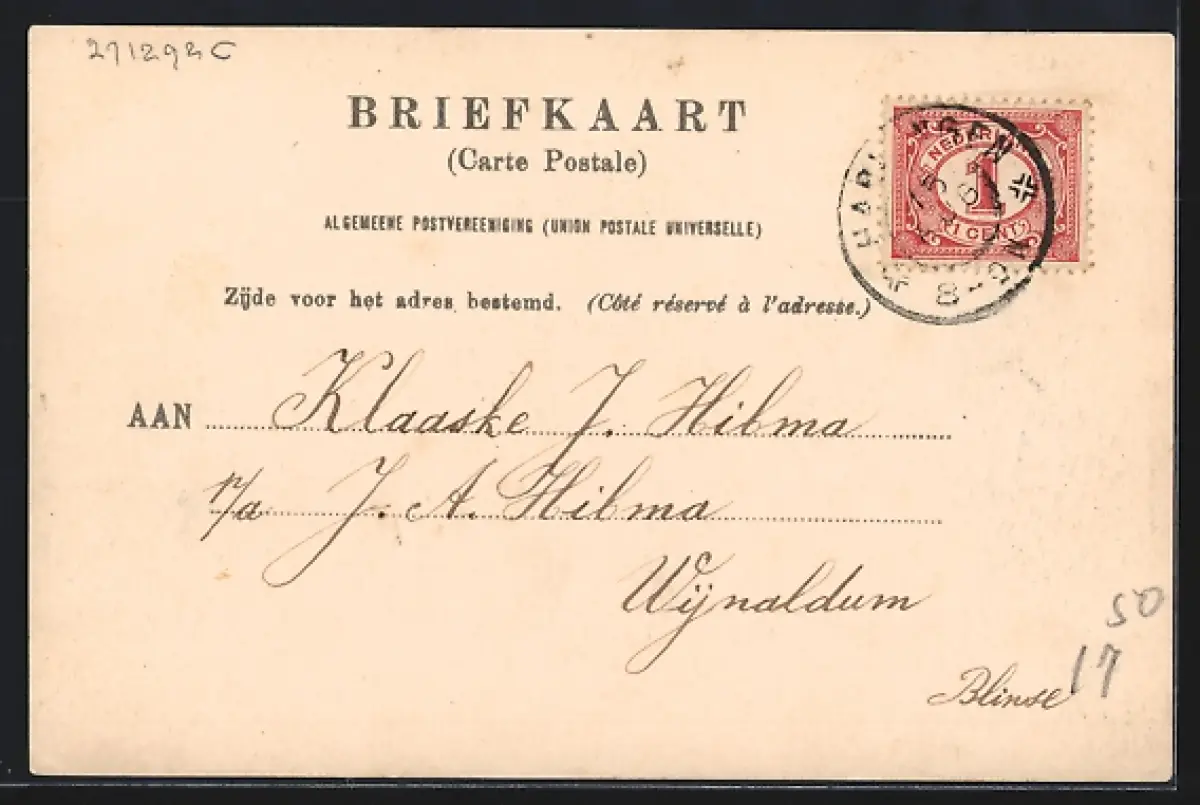 271292C
BRIEFKAART
(Carte Postale)
ALGEMEENE POSTVEREENIGING (UNION POSTALE UNIVERSELLE)
Zijde voor het adres bestemd. (Côté réservé à l'adresse.)
HARLINGEN
NEDERL
1
1 CENT
AAN Klaaske J. Hibma
p/a J. A. Hibma
Wijnaldum
50
17
Blinse